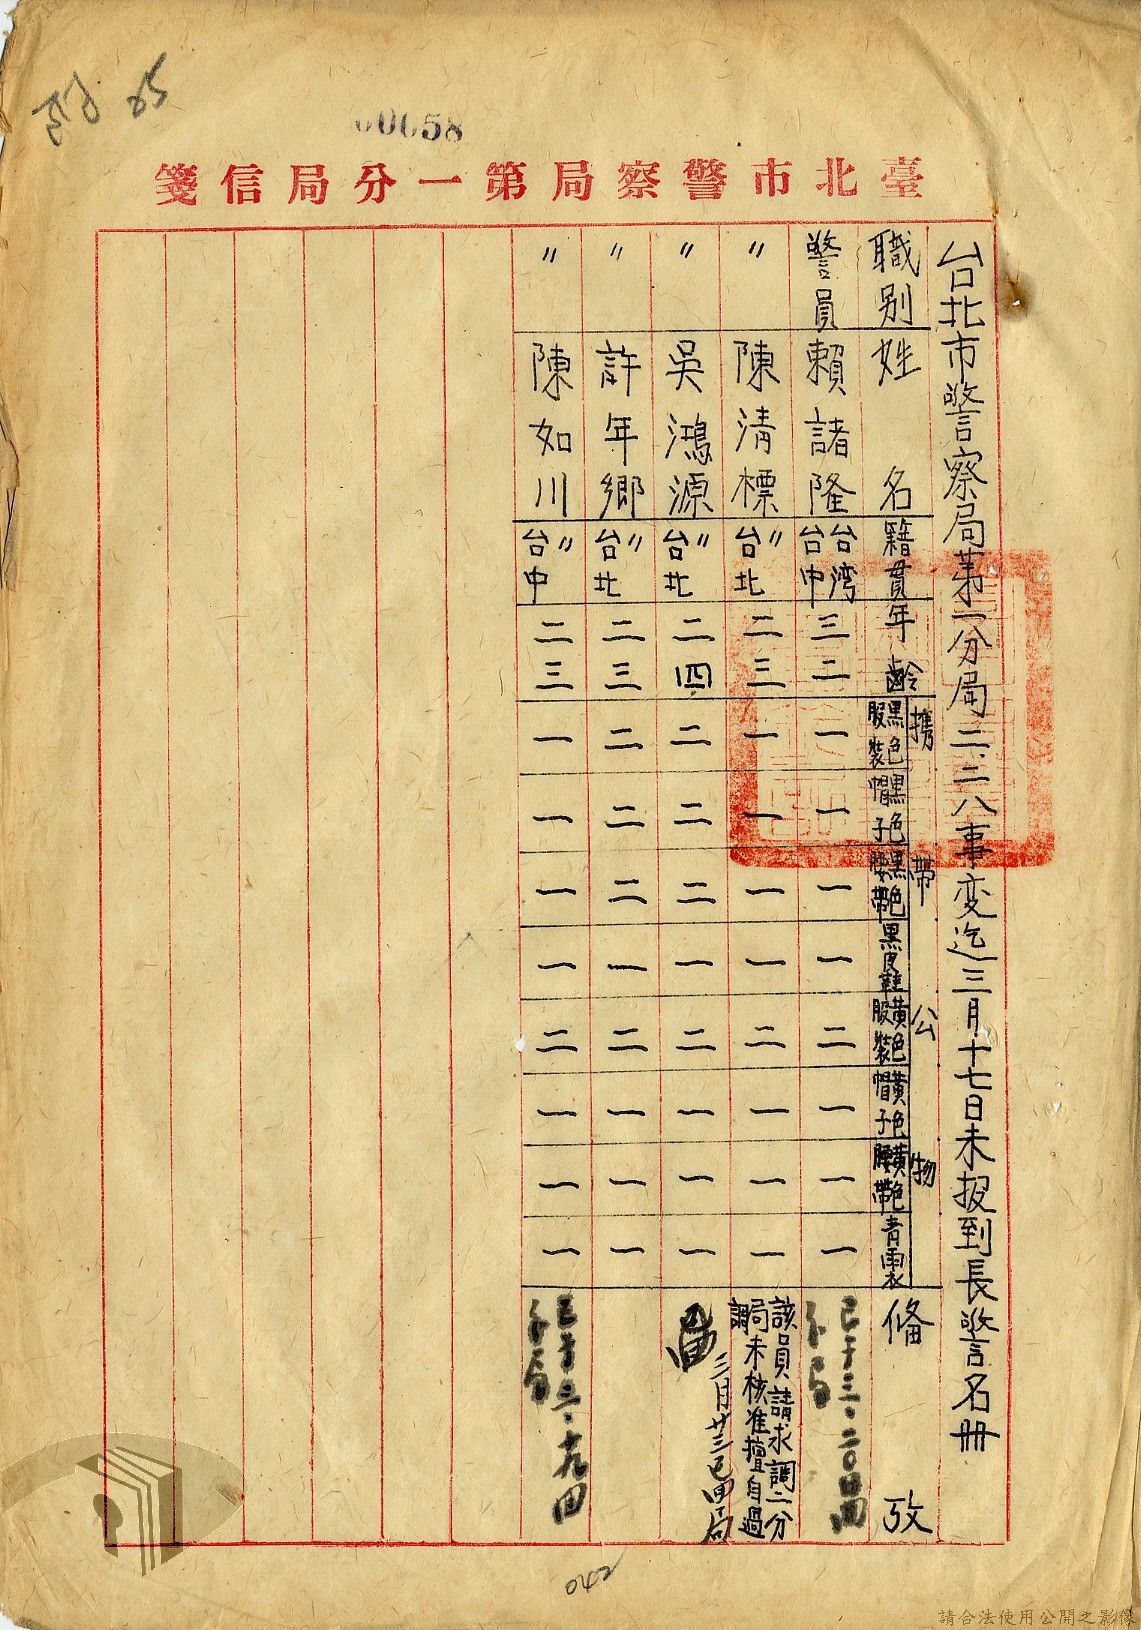 00658
臺北市警察局第一分局信箋
台北市警察局第一分局二、二八事変迄三月十七日未报到長警名冊
職別 姓名 籍貫 年齡 攜帶公物 俻攷
黑色服裝 黑色帽子 黑色腰帶 黑皮鞋 黃色服裝 黃色帽子 黃色腰帶 青雨衣
警員 賴諸隆 台湾台中 三二 一 一 一 一 二 一 一 一 已于三·二〇回本局
〃 陳清標 〃台北 二三 一 一 一 一 二 一 一 一 該員請求調二分局未核准擅自過調
〃 吳鴻源 〃台北 二四 二 二 二 一 二 一 一 一 三月廿三已回局
〃 許年鄉 〃台北 二三 二 二 二 一 二 一 一 一
〃 陳如川 〃台中 二三 一 一 一 一 二 一 一 一 已于三·十九回本局
042
請合法使用公開之影像